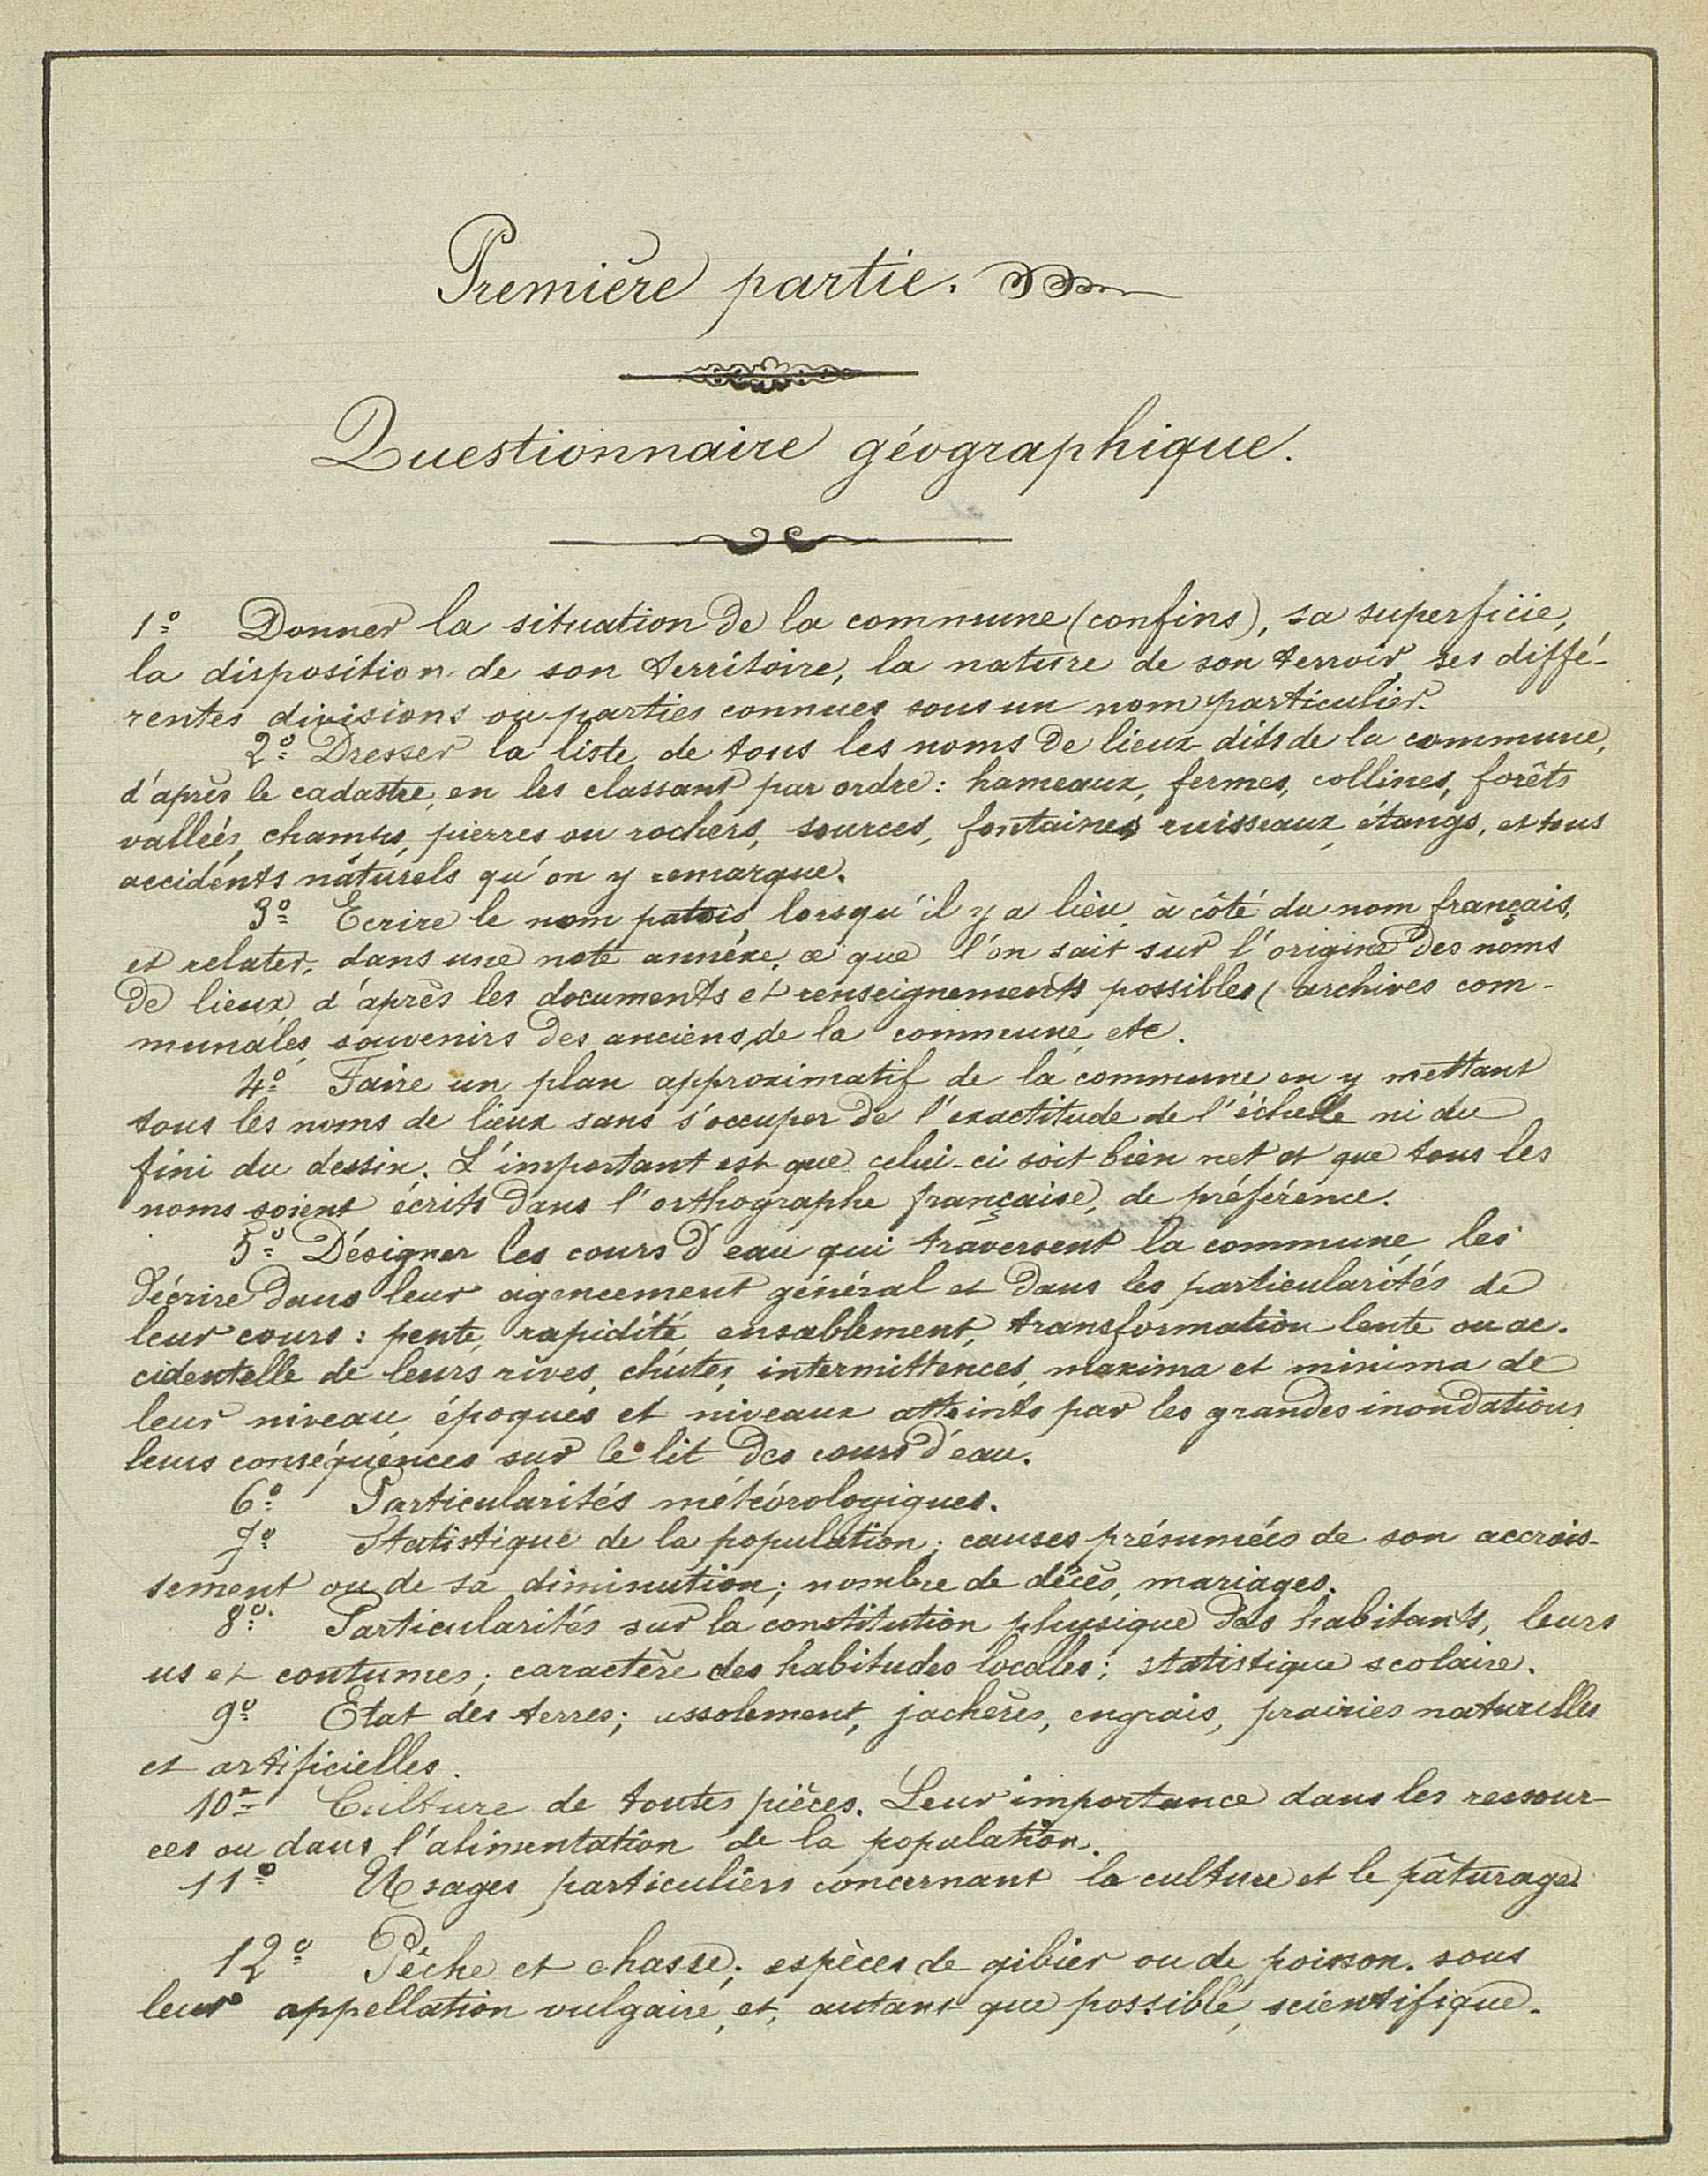 Première partie.
Questionnaire géographique.
1º Donner la situation de la commune (confins), sa superficie,
la disposition de son territoire, la nature de son terroir, ses diffé-
rentes divisions ou parties connues sous un nom particulier.
2º Dresser la liste de tous les noms de lieux-dits de la commune,
d'après le cadastre, en les classant par ordre : hameaux, fermes, collines, forêts
vallées, champs, pierres ou rochers, sources, fontaines ruisseaux, étangs, et tous
accidents naturels qu'on y remarque.
3º Ecrire le nom patois, lorsqu'il y a lieu, à côté du nom français,
et relater, dans une note annexe, ce que l'on sait sur l'origine des noms
de lieux, d'après les documents et renseignements possibles (archives com-
munales, souvenirs des anciens de la commune, etc.
4º Faire un plan approximatif de la commune en y mettant
tous les noms de lieux sans s'occuper de l'exactitude de l'échelle ni du
fini du dessin. L'important est que celui-ci soit bien net et que tous les
noms soient écrits dans l'orthographe française, de préférence.
5º Désigner les cours d'eau qui traversent la commune, les
décrire dans leur agencement général et dans les particularités de
leur cours : pente, rapidité, ensablement, transformation lente ou ac-
cidentelle de leurs rives, chutes, intermittences, maxima et minima de
leur niveau, époques et niveaux atteints par les grandes inondations,
leurs conséquences sur le lit des cours d'eau.
6º Particularités météorologiques.
7º Statistique de la population ; causes présumées de son accrois-
sement ou de sa diminution ; nombre de décès, mariages.
8º Particularités sur la constitution physique des habitants, leurs
us et coutumes ; caractère des habitudes locales ; statistique scolaire.
9º Etat des terres ; assolement, jachères, engrais, prairies naturelles
et artificielles.
10º Culture de toutes pièces. Leur importance dans les ressour-
ces ou dans l'alimentation de la population.
11º Usages particuliers concernant la culture et le pâturage.
12º Pêche et chasse ; espèces de gibier ou de poisson. sous
leur appellation vulgaire, et, autant que possible, scientifique.